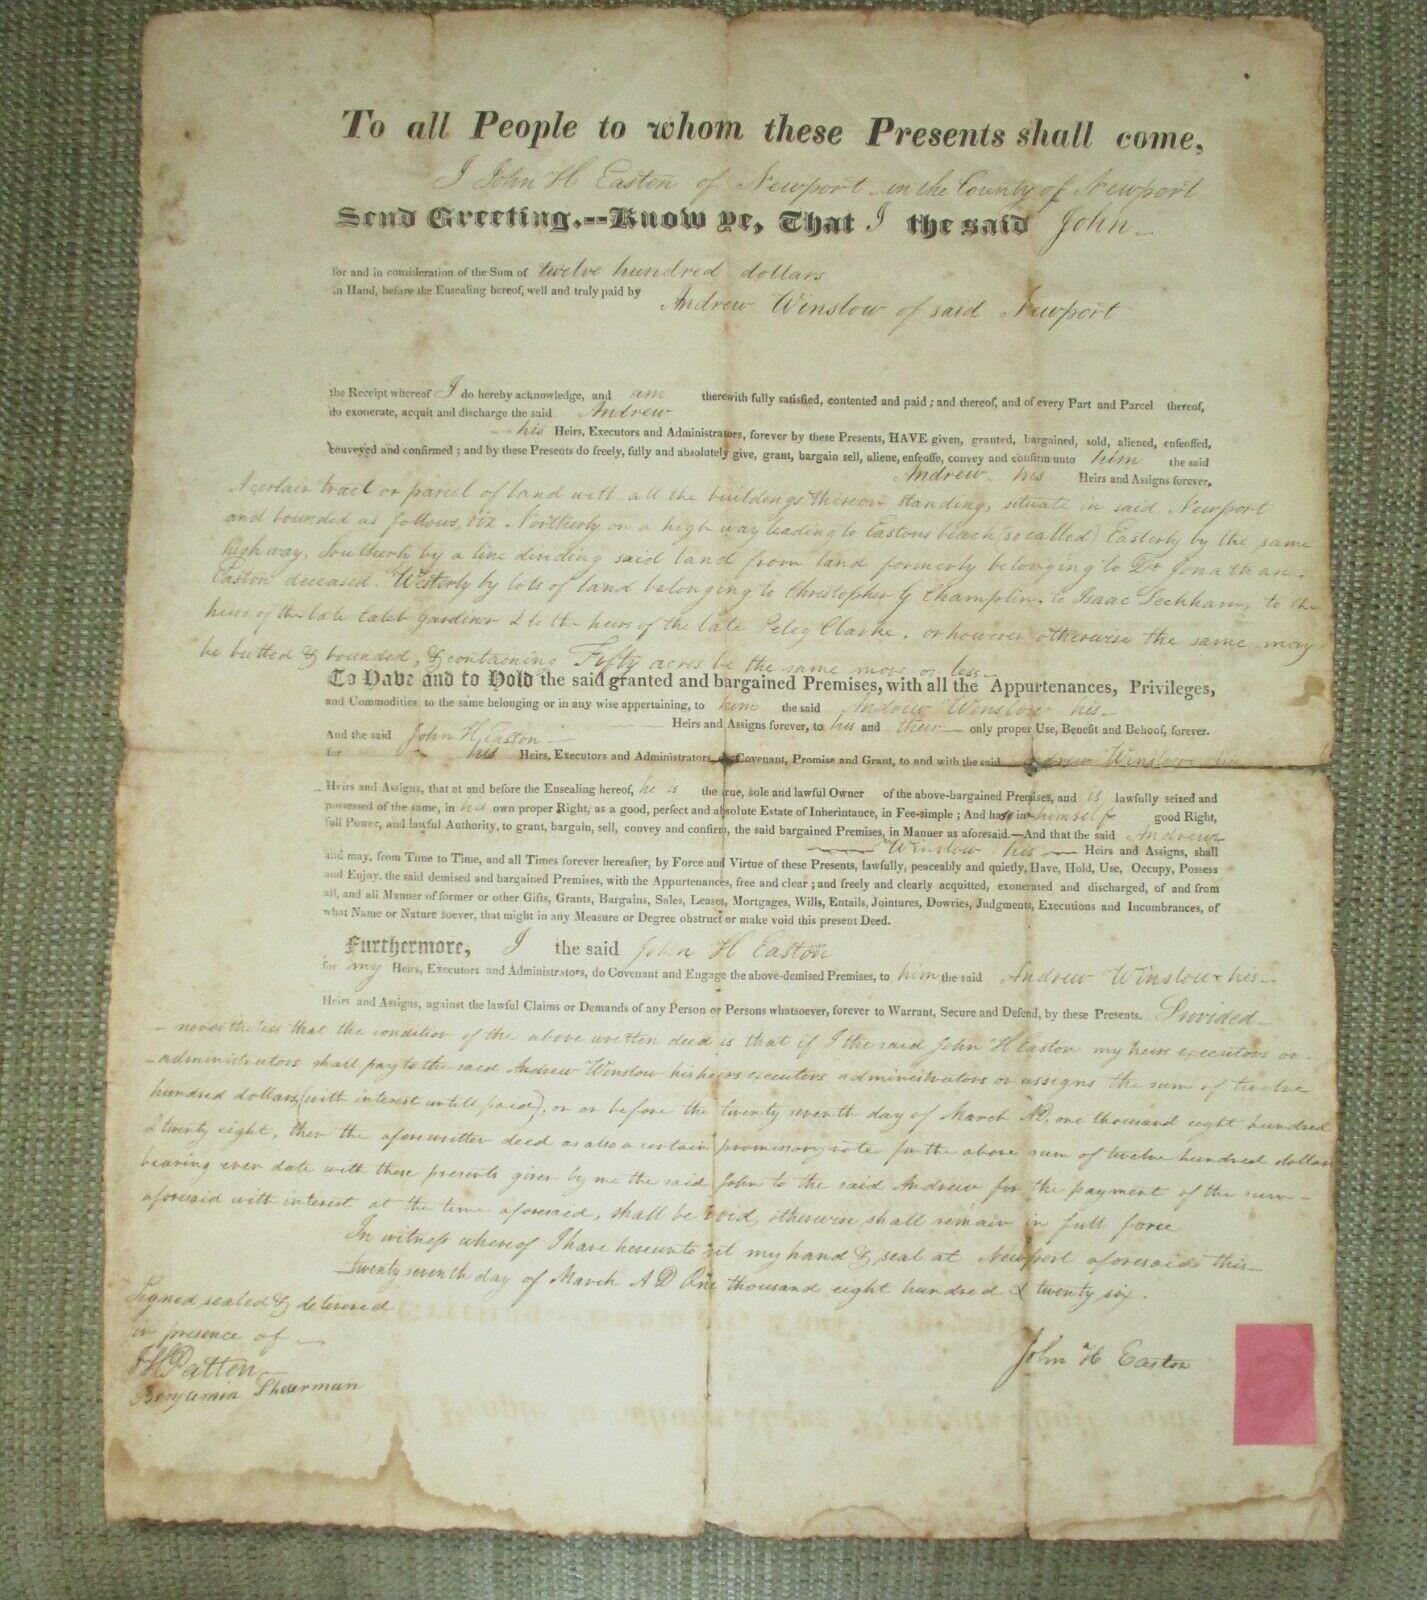 To all People to whom these Presents shall come,
I John H Easton of Newport in the County of Newport
Send Greeting.--Know ye, That I the said John
for and in consideration of the Sum of twelve hundred dollars
in Hand, before the Ensealing hereof, well and truly paid by
Andrew Winslow of said Newport
the Receipt whereof I do hereby acknowledge, and am therewith fully satisfied, contented and paid; and thereof, and of every Part and Parcel thereof,
do exonerate, acquit and discharge the said Andrew
his Heirs, Executors and Administrators, forever by these Presents, HAVE given, granted, bargained, sold, aliened, enfeoffed,
conveyed and confirmed; and by these Presents do freely, fully and absolutely give, grant, bargain sell, aliene, enfeoffe, convey and confirm unto him the said
Andrew his Heirs and Assigns forever,
A certain tract or parcel of land with all the buildings thereon standing, situate in said Newport
and bounded as follows, viz Northerly on a high way leading to Eastons beach (so called) Easterly by the same
highway, Southerly by a line dividing said land from land formerly belonging to Dr Jonathan
Easton deceased. Westerly by lots of land belonging to Christopher G Champlin, to Isaac Peckham, to the
heirs of the late Caleb Gardiner & to the heirs of the late Peleg Clarke, or however otherwise the same may
be butted & bounded, & containing Fifty acres be the same more or less
To Have and to Hold the said granted and bargained Premises, with all the Appurtenances, Privileges,
and Commodities to the same belonging or in any wise appertaining, to him the said Andrew Winslow his
Heirs and Assigns forever, to his and their only proper Use, Benefit and Behoof, forever.
And the said John H Easton
for his Heirs, Executors and Administrators, do Covenant, Promise and Grant, to and with the said Andrew Winslow his
Heirs and Assigns, that at and before the Ensealing hereof, he is the true, sole and lawful Owner of the above-bargained Premises, and is lawfully seized and
possessed of the same, in his own proper Right, as a good, perfect and absolute Estate of Inheritance, in Fee-simple; And has in himself good Right,
full Power, and lawful Authority, to grant, bargain, sell, convey and confirm, the said bargained Premises, in Manner as aforesaid.—And that the said Andrew
Winslow his Heirs and Assigns, shall
and may, from Time to Time, and all Times forever hereafter, by Force and Virtue of these Presents, lawfully, peaceably and quietly, Have, Hold, Use, Occupy, Possess
and Enjoy, the said demised and bargained Premises, with the Appurtenances, free and clear; and freely and clearly acquitted, exonerated and discharged, of and from
all, and all Manner of former or other Gifts, Grants, Bargains, Sales, Leases, Mortgages, Wills, Entails, Jointures, Dowries, Judgments, Executions and Incumbrances, of
what Name or Nature soever, that might in any Measure or Degree obstruct or make void this present Deed.
Furthermore, I the said John H Easton
for my Heirs, Executors and Administrators, do Covenant and Engage the above-demised Premises, to him the said Andrew Winslow his
Heirs and Assigns, against the lawful Claims or Demands of any Person or Persons whatsoever, forever to Warrant, Secure and Defend, by these Presents. Provided
nevertheless that the condition of the above written deed is that if I the said John H Easton my heirs executors or
administrators shall pay to the said Andrew Winslow his heirs executors administrators or assigns the sum of twelve
hundred dollars (with interest untill paid), on or before the twenty seventh day of March AD, one thousand eight hundred
& twenty eight, then the aforewritten deed as also a certain promissory note for the above sum of twelve hundred dollars
bearing even date with these presents given by me the said John to the said Andrew for the payment of the sum
aforesaid with interest at the time aforesaid, shall be void, otherwise shall remain in full force
In witness whereof I have hereunto set my hand & seal at Newport aforesaid this
twenty seventh day of March A D One thousand eight hundred & twenty six.
Signed sealed & delivered
in presence of
Patten
Benjamin Shearman
John H Easton